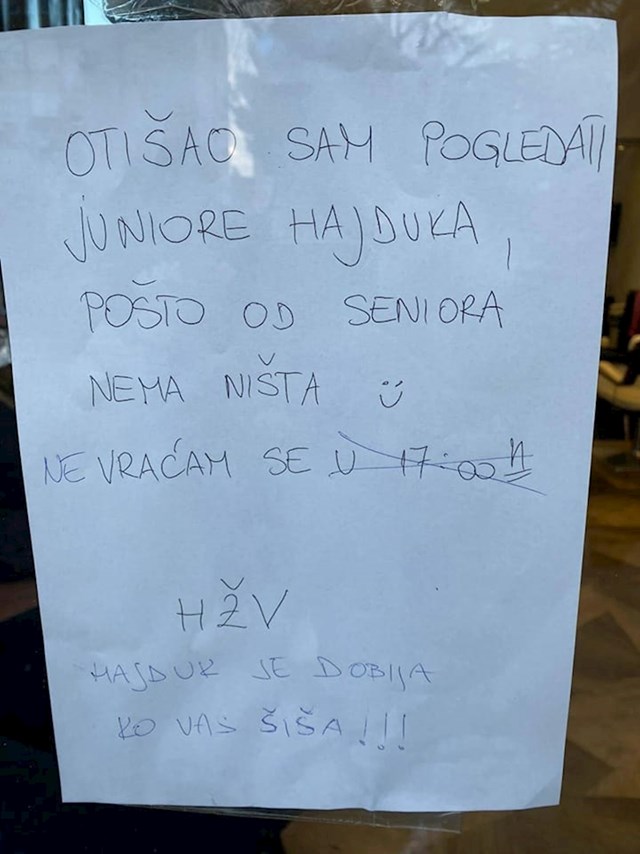 OTIŠAO SAM POGLEDATI
JUNIORE HAJDUKA,
POŠTO OD SENIORA
NEMA NIŠTA Ü
NE VRAĆAM SE U 17:00 H
HŽV
HAJDUK JE DOBIJA
KO VAS ŠIŠA!!!